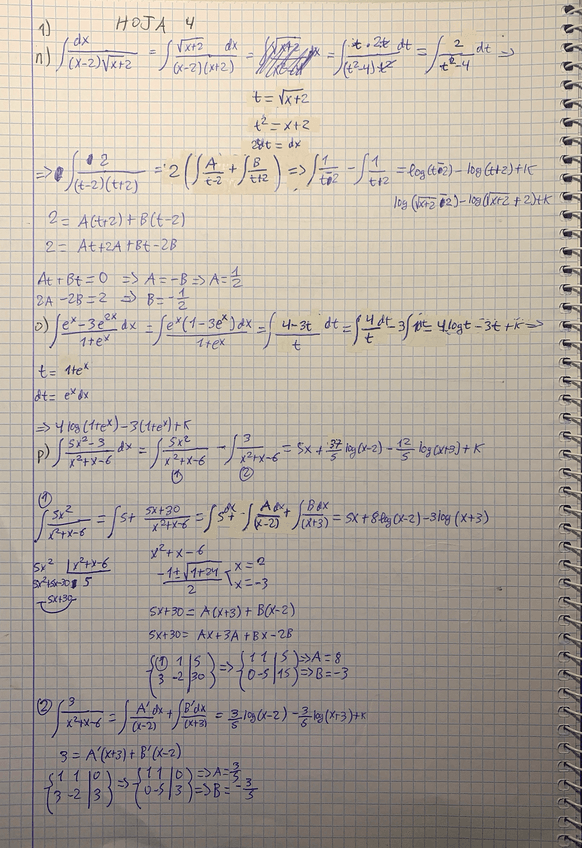 1) HOJA 4
n) ∫ dx/((x-2)√(x+2)) = ∫ √(x+2) dx/((x-2)(x+2)) = = ∫ t·2t dt/((t²-4)t²) = ∫ 2/(t²-4) dt ⇒
t = √(x+2)
t² = x+2
2t dt = dx
⇒ ∫ 2/((t-2)(t+2)) = 2(∫ A/(t-2) + ∫ B/(t+2)) ⇒ ∫ 1/(t-2) - ∫ 1/(t+2) = log(t-2) - log(t+2) + K
log(√(x+2) - 2) - log(√(x+2) + 2) + K
2 = A(t+2) + B(t-2)
2 = At+2A+Bt-2B
At+Bt = 0 ⇒ A = -B ⇒ A = 1/2
2A-2B = 2 ⇒ B = -1/2
o) ∫ (e^x - 3e^2x)/(1+e^x) dx = ∫ e^x(1-3e^x)dx/(1+e^x) = ∫ (4-3t)/t dt = ∫ 4/t dt - 3∫ dt = 4 log t - 3t + K ⇒
t = 1+e^x
dt = e^x dx
⇒ 4 log(1+e^x) - 3(1+e^x) + K
p) ∫ (5x²-3)/(x²+x-6) dx = ∫ 5x²/(x²+x-6) - ∫ 3/(x²+x-6) = 5x + 37/5 log(x-2) - 12/5 log(x+3) + K
① ②
① ∫ 5x²/(x²+x-6) = ∫ 5 + (5x+30)/(x²+x-6) = ∫ 5 dx - ∫ A dx/(x-2) + ∫ B dx/(x+3) = 5x + 8 log(x-2) - 3 log(x+3)
5x² | x²+x-6
5x²+5x-30 5
-5x+30
x²+x-6
(-1±√(1+24))/2 x = 2
x = -3
5x+30 = A(x+3) + B(x-2)
5x+30 = Ax+3A+Bx-2B
(1 1 | 5 ⇒ (1 1 | 5 ⇒ A = 8
3 -2 | 30) 0 -5 | 15) ⇒ B = -3
② ∫ 3/(x²+x-6) = ∫ A'dx/(x-2) + ∫ B'dx/(x+3) = 3/5 log(x-2) - 3/5 log(x+3) + K
3 = A'(x+3) + B'(x-2)
(1 1 | 0 ⇒ (1 1 | 0 ⇒ A = 3/5
3 -2 | 3) 0 -5 | 3) ⇒ B = -3/5